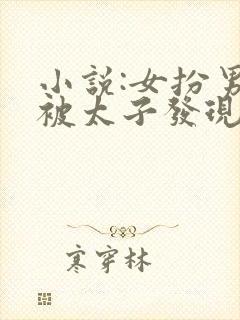 小説:女扮男
被太子發現
寒穿林